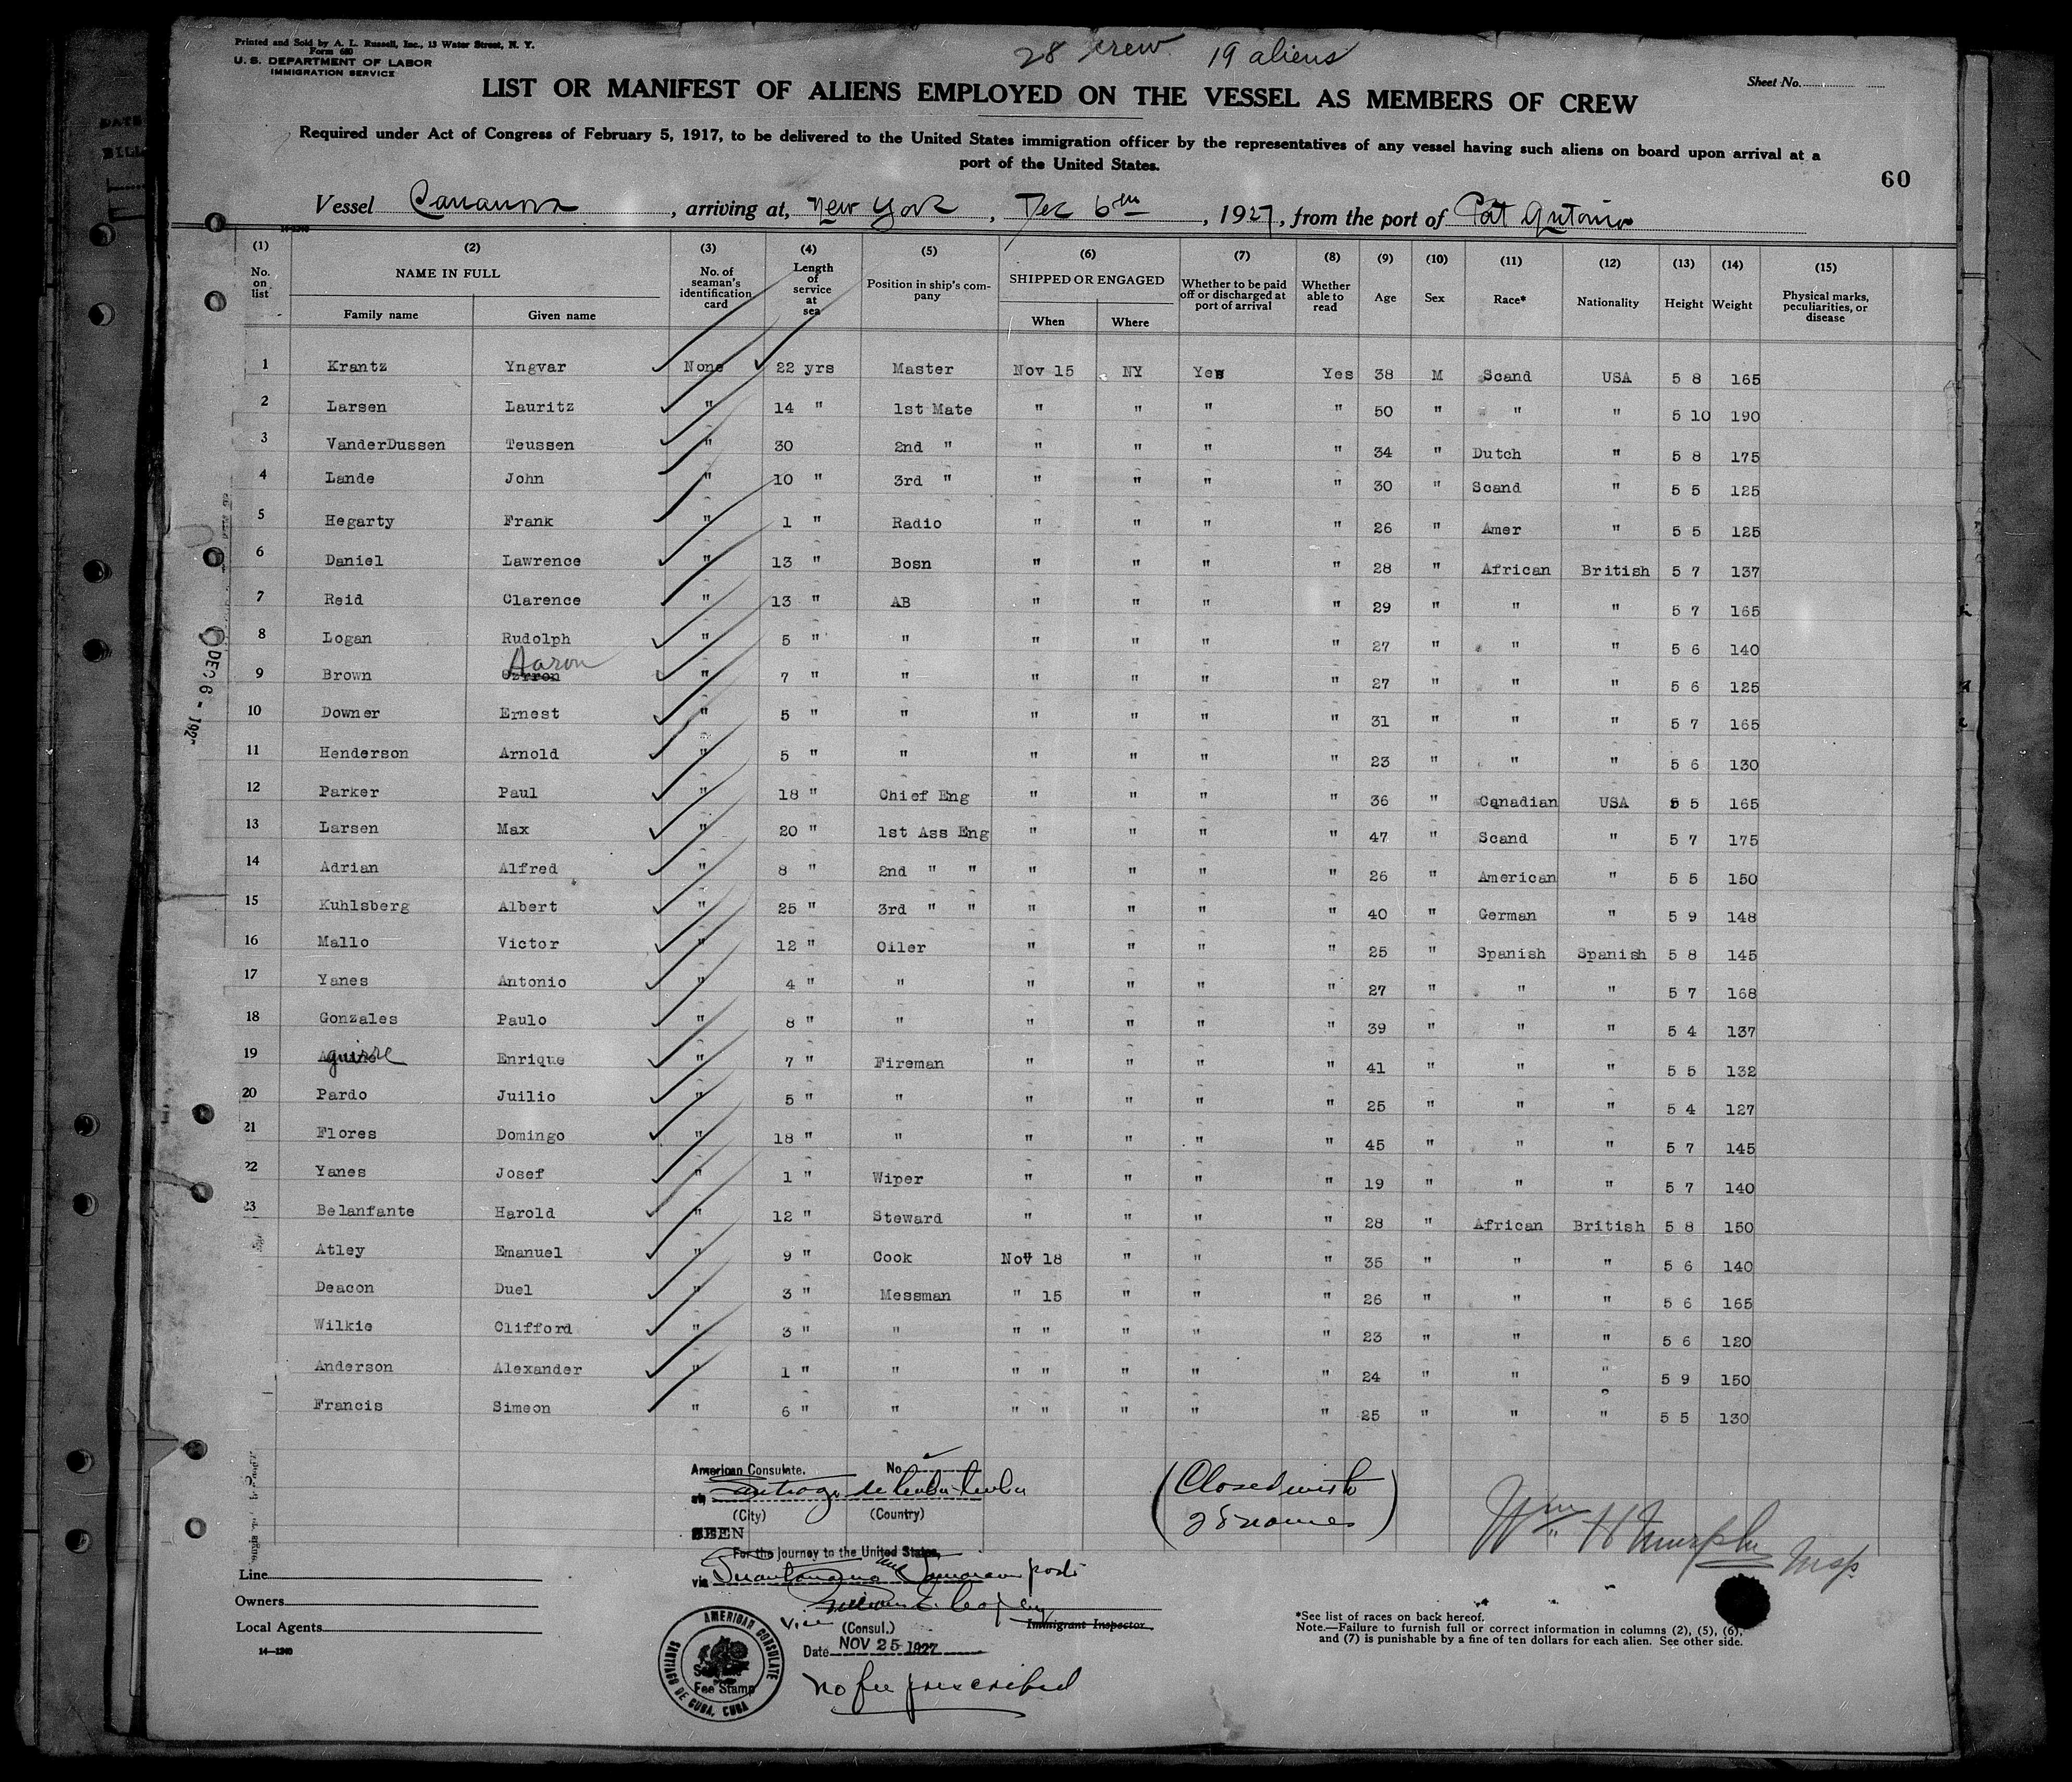 Printed and Sold by A. L. Russell, Inc., 13 Water Street, N. Y.
Form 680
U. S. DEPARTMENT OF LABOR
IMMIGRATION SERVICE
28 crew 19 aliens
Sheet No.
LIST OR MANIFEST OF ALIENS EMPLOYED ON THE VESSEL AS MEMBERS OF CREW
Required under Act of Congress of February 5, 1917, to be delivered to the United States immigration officer by the representatives of any vessel having such aliens on board upon arrival at a
port of the United States.
60
Vessel Cananova, arriving at, New York, Dec 6th, 1927, from the port of Pot Antonio
14-1240
(1) (2) (3) (4) (5) (6) (7) (8) (9) (10) (11) (12) (13) (14) (15)
No. on list NAME IN FULL No. of seaman's identification card Length of service at sea Position in ship's company SHIPPED OR ENGAGED Whether to be paid off or discharged at port of arrival Whether able to read Age Sex Race* Nationality Height Weight Physical marks, peculiarities, or disease
Family name Given name When Where
1 Krantz Yngvar None 22 yrs Master Nov 15 NY Yes Yes 38 M Scand USA 5 8 165
2 Larsen Lauritz " 14 " 1st Mate " " " " 50 " " " 5 10 190
3 VanderDussen Teussen " 30 2nd " " " " " 34 " Dutch " 5 8 175
4 Lande John " 10 " 3rd " " " " " 30 " Scand " 5 5 125
5 Hegarty Frank " 1 " Radio " " " " 26 " Amer " 5 5 125
6 Daniel Lawrence " 13 " Bosn " " " " 28 " African British 5 7 137
7 Reid Clarence " 13 " AB " " " " 29 " " " 5 7 165
8 Logan Rudolph " 5 " " " " " " 27 " " " 5 6 140
Aaron
9 Brown Ozrron " 7 " " " " " " 27 " " " 5 6 125
10 Downer Ernest " 5 " " " " " " 31 " " " 5 7 165
11 Henderson Arnold " 5 " " " " " " 23 " " " 5 6 130
12 Parker Paul " 18 " Chief Eng " " " " 36 " Canadian USA 5 5 165
13 Larsen Max " 20 " 1st Ass Eng " " " " 47 " Scand " 5 7 175
14 Adrian Alfred " 8 " 2nd " " " " " " 26 " American " 5 5 150
15 Kuhlsberg Albert " 25 " 3rd " " " " " " 40 " German " 5 9 148
16 Mallo Victor " 12 " Oiler " " " " 25 " Spanish Spanish 5 8 145
17 Yanes Antonio " 4 " " " " " " 27 " " " 5 7 168
18 Gonzales Paulo " 8 " " " " " " 39 " " " 5 4 137
19 Aguirre Enrique " 7 " Fireman " " " " 41 " " " 5 5 132
20 Pardo Juilio " 5 " " " " " " 25 " " " 5 4 127
21 Flores Domingo " 18 " " " " " " 45 " " " 5 7 145
22 Yanes Josef " 1 " Wiper " " " " 19 " " " 5 7 140
23 Belanfante Harold " 12 " Steward " " " " 28 " African British 5 8 150
Atley Emanuel " 9 " Cook Nov 18 " " " 35 " " " 5 6 140
Deacon Duel " 3 " Messman " 15 " " " 26 " " " 5 6 165
Wilkie Clifford " 3 " " " " " " " 23 " " " 5 6 120
Anderson Alexander " 1 " " " " " " " 24 " " " 5 9 150
Francis Simeon " 6 " " " " " " " 25 " " " 5 5 130
DEC 6 - 192
American Consulate. No.
at Santiago de Cuba Cuba
(City) (Country)
SEEN
For the journey to the United States,
via Guantanamo and Jamaican ports
Vice (Consul.) Immigrant Inspector
Date NOV 25 1927
no fee prescribed
AMERICAN CONSULATE
SANTIAGO DE CUBA, CUBA
Fee Stamp
(Closed with
28 names)
Wm H Murphy Insp
Line
Owners
Local Agents
14-1240
*See list of races on back hereof.
Note.—Failure to furnish full or correct information in columns (2), (5), (6),
and (7) is punishable by a fine of ten dollars for each alien. See other side.